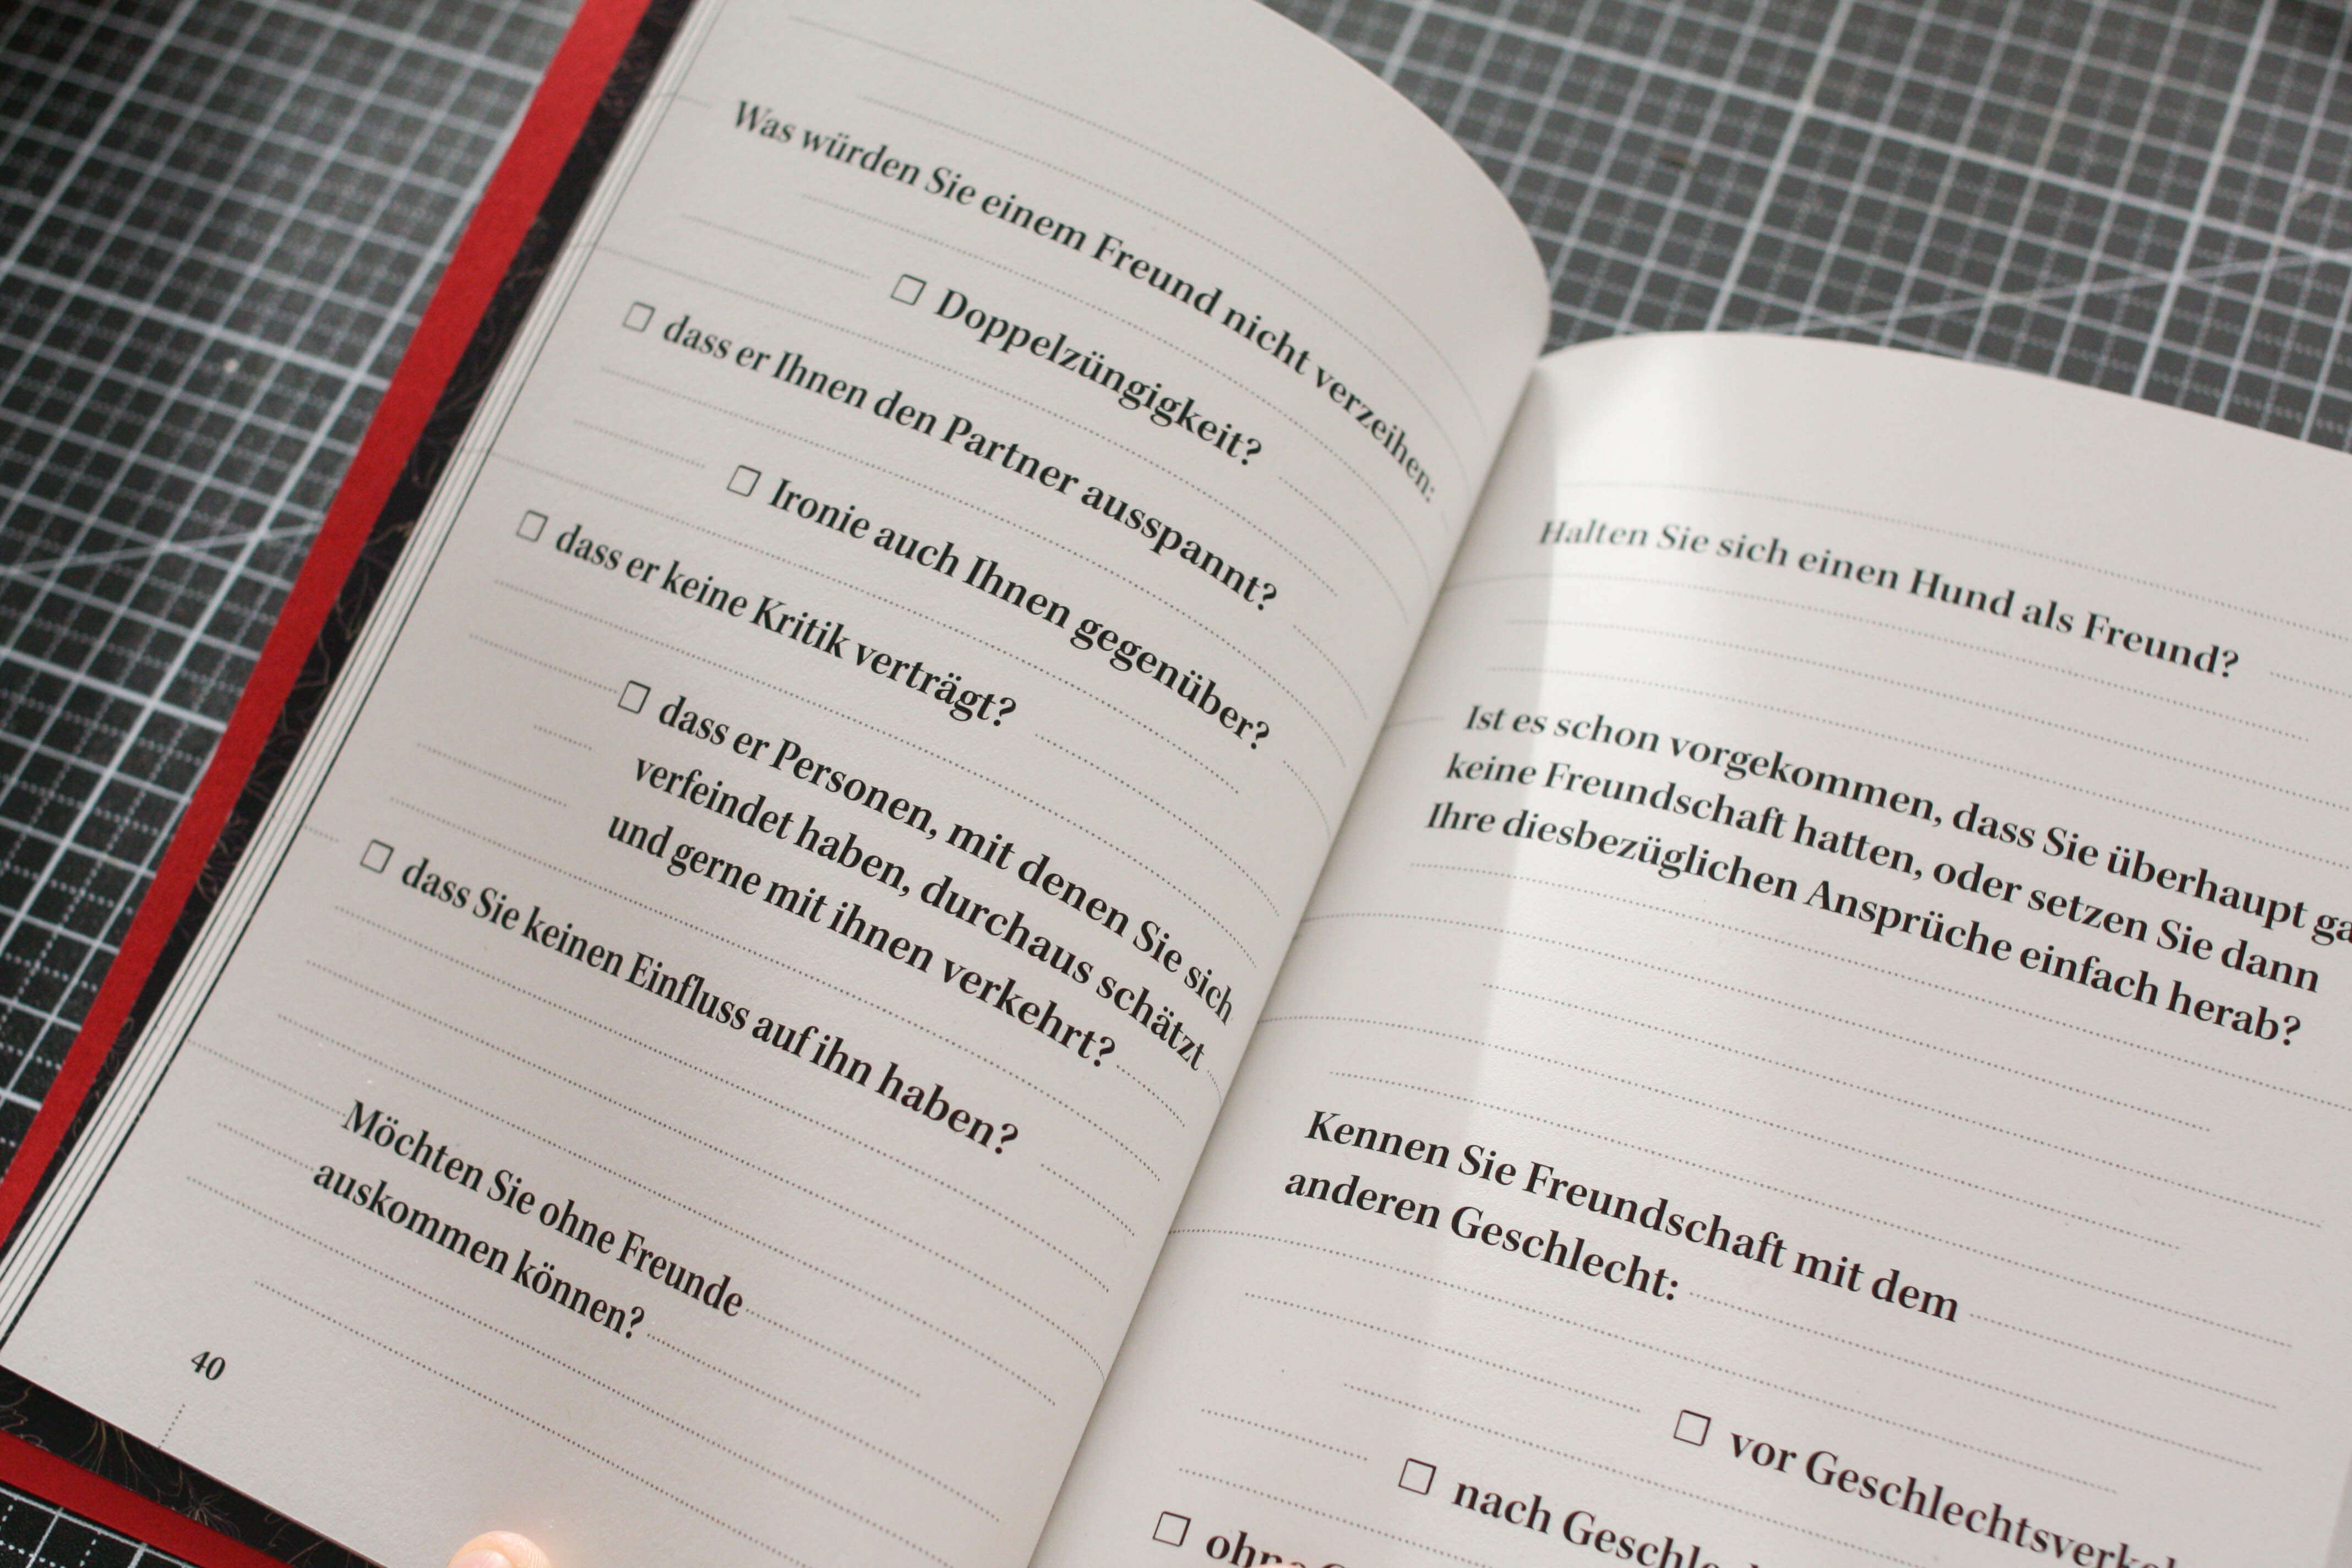 Was würden Sie einem Freund nicht verzeihen:
☐ Doppelzüngigkeit?
☐ dass er Ihnen den Partner ausspannt?
☐ Ironie auch Ihnen gegenüber?
☐ dass er keine Kritik verträgt?
☐ dass er Personen, mit denen Sie sich
verfeindet haben, durchaus schätzt
und gerne mit ihnen verkehrt?
☐ dass Sie keinen Einfluss auf ihn haben?
Möchten Sie ohne Freunde
auskommen können?
40
Halten Sie sich einen Hund als Freund?
Ist es schon vorgekommen, dass Sie überhaupt
keine Freundschaft hatten, oder setzen Sie dann
Ihre diesbezüglichen Ansprüche einfach herab?
Kennen Sie Freundschaft mit dem
anderen Geschlecht:
☐ vor
☐ nach
☐